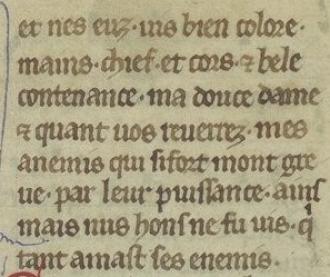 et nes euz · uis bien colore ·
mains · chief · et cors · ⁊ bele
contenance · ma douce dame
⁊ quant uos reuerrez · mes
anemis qui si fort mont gre
ue · par leur puissance · ains
mais nus hons ne fu uis · q̇
tant amast ses enemis ·